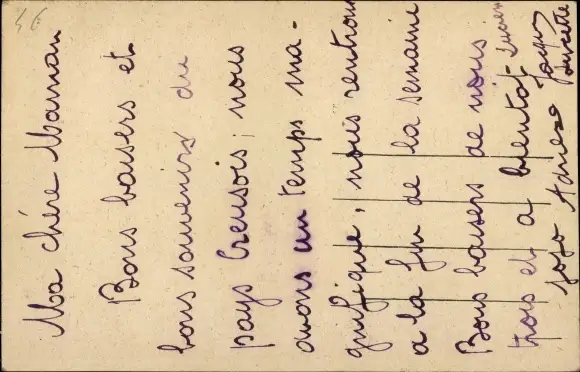 Ma chère Maman
Bons baisers et
bons souvenirs du
pays Creusois; nous
avons un temps ma-
gnifique, nous rentrons
a la fin de la semaine
Bons baisers de nous
trois et a bientot
Jojo
Jacques